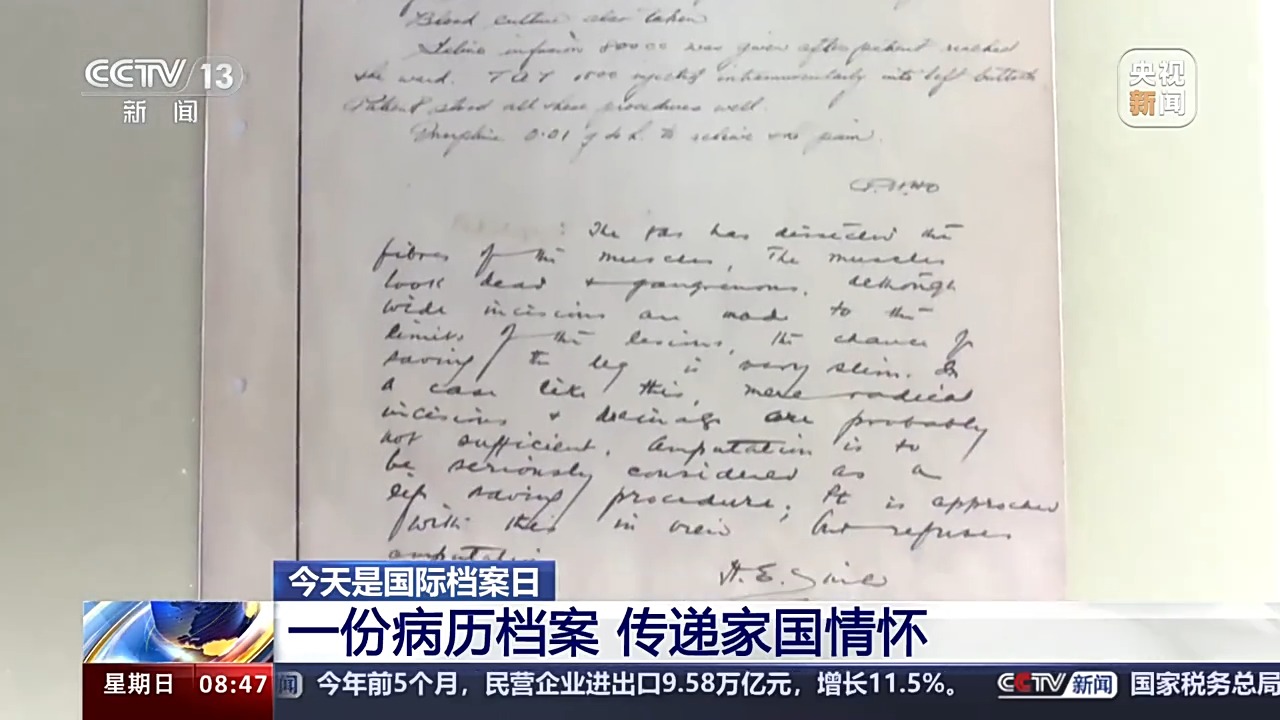 Blood culture also taken
Saline infusion 800 cc was given after patient reached
the ward. T A T 1500 injected intramuscularly into left buttock
Patient stood all these procedures well.
Morphine 0.01 g to relieve pain.
The gas has dissected the
fibres of the muscles, The muscles
look dead + gangrenous. Although
wide incisions are made to the
limits of the lesions, the chance of
saving the leg is very slim. In
a case like this, mere radical
incisions + drainage are probably
not sufficient. Amputation is to
be seriously considered as a
life saving procedure; Pt is approached
with this in view but refuses
amputation
CCTV 13
新闻
央视
新闻
今天是国际档案日
一份病历档案 传递家国情怀
星期日 08:47
闻 今年前5个月，民营企业进出口9.58万亿元，增长11.5%。 CCTV 新闻 国家税务总局